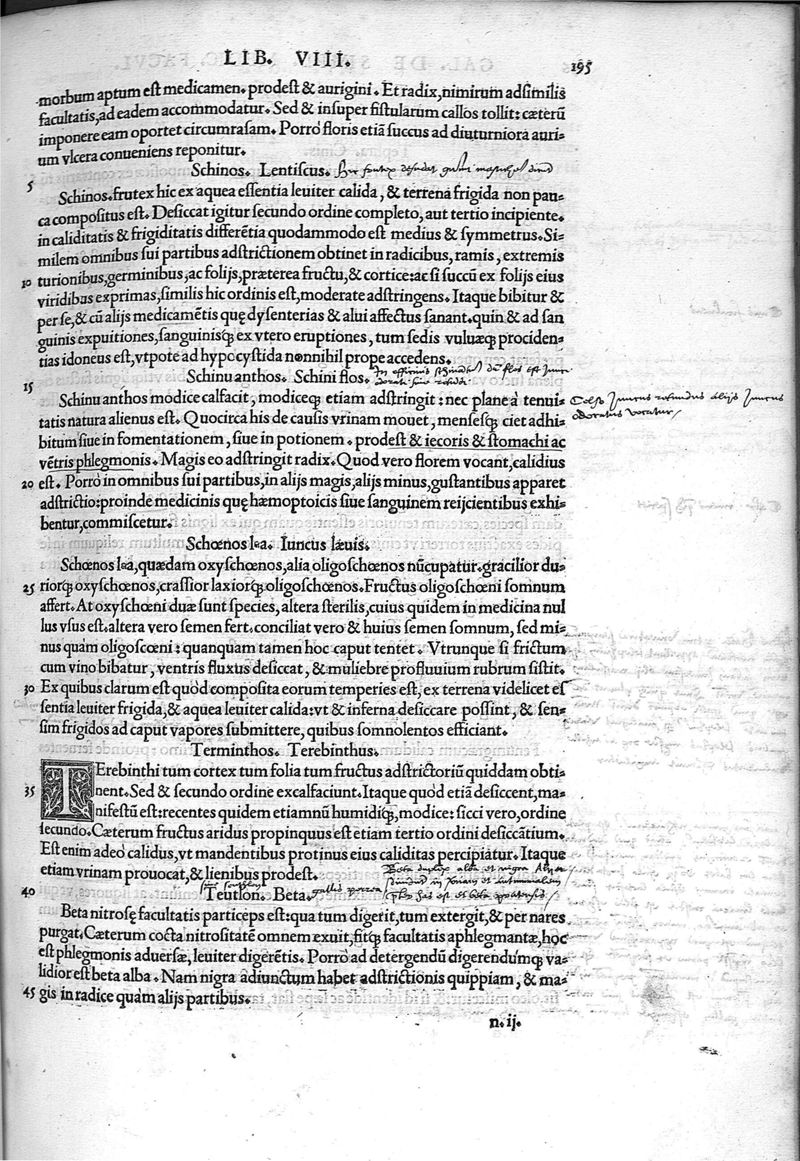 LIB. VIII. 195
morbum aptum est medicamen. prodest & aurigini. Et radix, nimirum adsimilis
facultatis, ad eadem accommodatur. Sed & insuper fistularum callos tollit: cæterũ
imponere eam oportet circumrasam. Porrò floris etiã succus ad diuturniora auri-
um vlcera conueniens reponitur.
Schinos. Lentiscus.
5
Schinos. frutex hic ex aquea essentia leuiter calida, & terrena frigida non pau-
ca compositus est. Desiccat igitur secundo ordine completo, aut tertio incipiente.
in caliditatis & frigiditatis differẽtia quodammodo est medius & symmetrus. Si-
milem omnibus sui partibus adstrictionem obtinet in radicibus, ramis, extremis
10 turionibus, germinibus, ac folijs, præterea fructu, & cortice: ac si succũ ex folijs eius
viridibus exprimas, similis hic ordinis est, moderate adstringens. Itaque bibitur &
per se, & cũ alijs medicamẽtis quę dysenterias & alui affectus sanant. quin & ad san
guinis expuitiones, sanguinisq; ex vtero eruptiones, tum sedis vuluæq; prociden-
tias idoneus est, vtpote ad hypocystida nonnihil prope accedens.
Schinu anthos. Schini flos.
15
Schinu anthos modice calfacit, modiceq; etiam adstringit: nec plane à tenui-
tatis natura alienus est. Quocirca his de causis vrinam mouet, mensesq; ciet adhi-
bitum siue in fomentationem, siue in potionem. prodest & iecoris & stomachi ac
vẽtris phlegmonis. Magis eo adstringit radix. Quod vero florem vocant, calidius
20 est. Porrò in omnibus sui partibus, in alijs magis, alijs minus, gustantibus apparet
adstrictio: proinde medicinis quę hæmoptoicis siue sanguinem reijcientibus exhi-
bentur, commiscetur.
Schœnos lea. Iuncus læuis.
Schœnos lea, quædam oxyschœnos, alia oligoschœnos nũcupatur. gracilior du-
25 riorq; oxyschœnos, crassior laxiorq; oligoschœnos. Fructus oligoschœni somnum
affert. At oxyschœni duæ sunt species, altera sterilis, cuius quidem in medicina nul
lus vsus est. altera vero semen fert. conciliat vero & huius semen somnum, sed mi-
nus quàm oligoscœni: quanquam tamen hoc caput tentet. Vtrunque si frictum
cum vino bibatur, ventris fluxus desiccat, & muliebre profluuium rubrum sistit.
30 Ex quibus clarum est quòd composita eorum temperies est, ex terrena videlicet es
sentia leuiter frigida, & aquea leuiter calida: vt & inferna desiccare possint, & sen-
sim frigidos ad caput vapores submittere, quibus somnolentos efficiant.
Terminthos. Terebinthus.
TErebinthi tum cortex tum folia tum fructus adstrictoriũ quiddam obti-
35 nent. Sed & secundo ordine excalfaciunt. Itaque quòd etiã desiccent, ma-
nifestũ est: recentes quidem etiamnũ humidiq;, modice: sicci vero, ordine
secundo. Cæterum fructus aridus propinquus est etiam tertio ordini desiccãtium.
Est enim adeò calidus, vt mandentibus protinus eius caliditas percipiatur. Itaque
etiam vrinam prouocat, & lienibus prodest.
40 Teutlon. Beta.
Beta nitrosę facultatis particeps est: qua tum digerit, tum extergit, & per nares
purgat. Cæterum cocta nitrositatẽ omnem exuit, fitq; facultatis aphlegmantæ, hoc
est phlegmonis aduersæ, leuiter digerẽtis. Porrò ad detergendũ digerendumq; va-
lidior est beta alba. Nam nigra adiunctum habet adstrictionis quippiam, & ma-
45 gis in radice quàm alijs partibus.
n. ij.